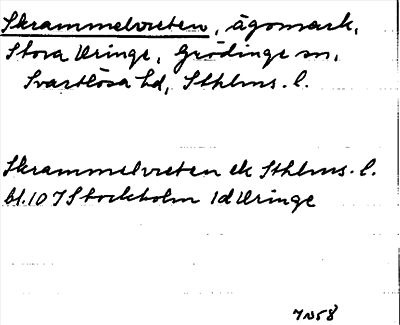 Skrammelvreten, ägomark,
Stora Uringe, Grödinge sn,
Svartlösa hd, Sthlms. l.
Skrammelvreten ek Sthlms. l.
bl. 10 7 Stockholm 1d Uringe
7N58